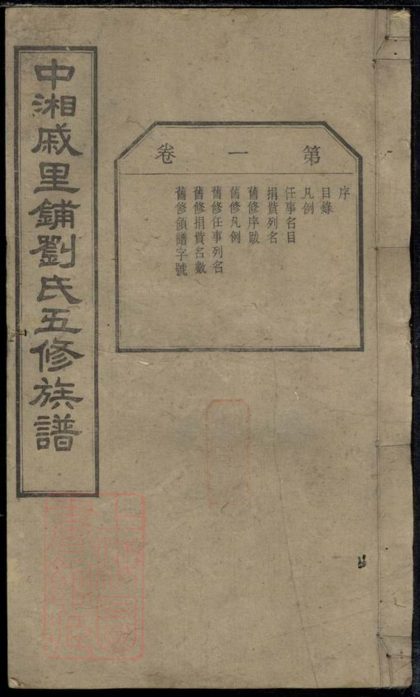 中湘戚里鋪劉氏五修族譜
第一卷
序
目錄
凡例
任事名目
捐貲列名
舊修序跋
舊修凡例
舊修任事列名
舊修捐貲名數
舊修領譜字號